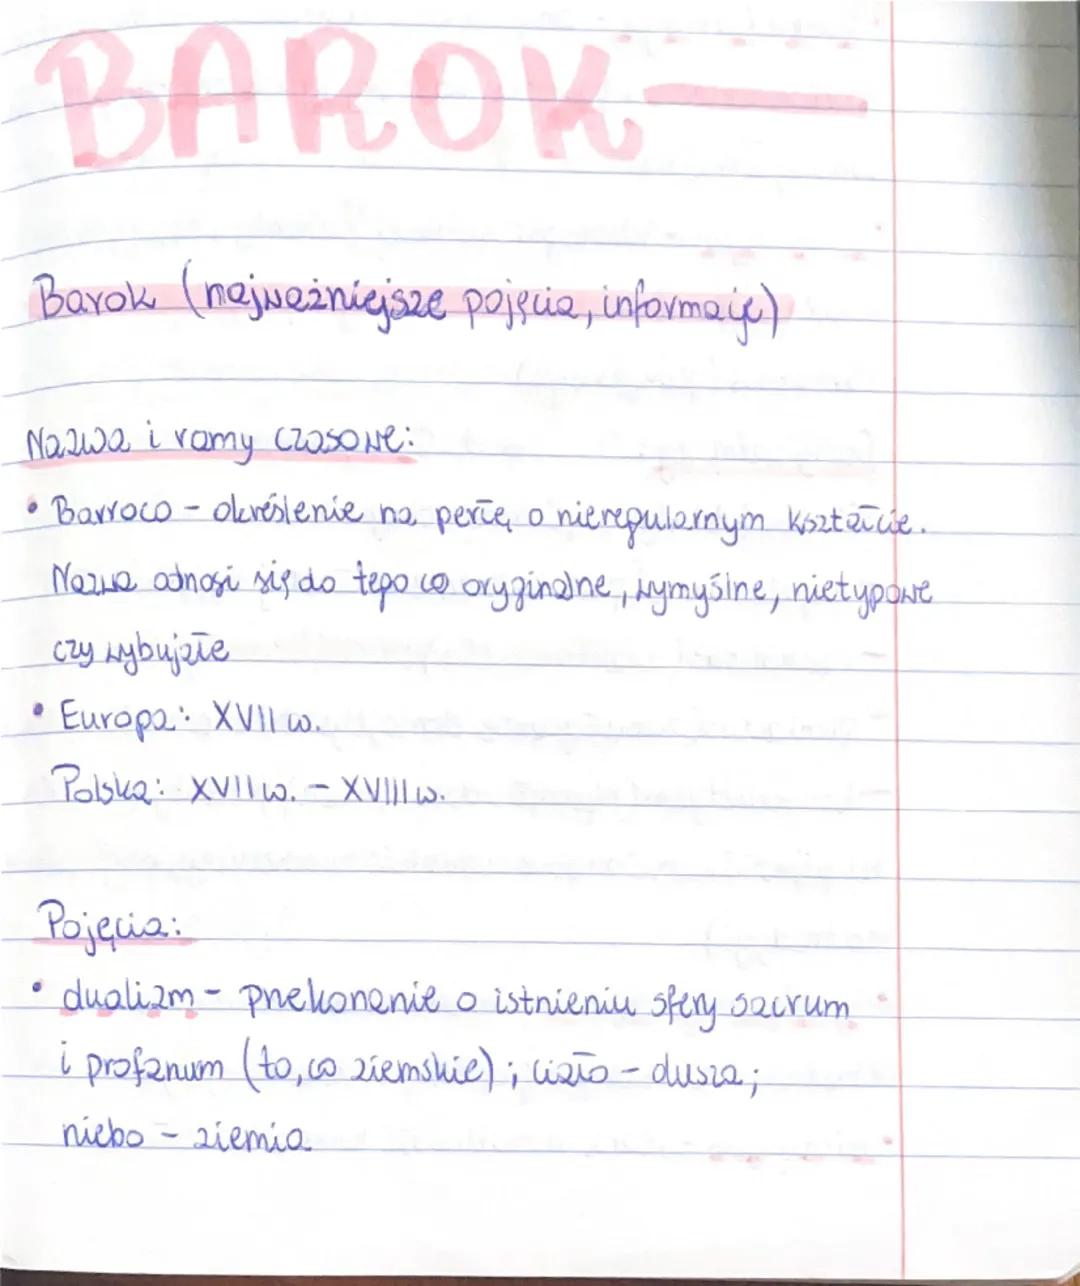 BAROK
Barok (najważniejsze pojęcia, informacje)
Nazwa i ramy czasowe:
• Barroco - określenie na perłę o nieregularnym kształcie.
Nazwa odnosi się do tego co oryginalne, wymyślne, nietypowe
czy wybujałe
• Europa: XVII w.
Polska: XVII w. - XVIII w.
Pojęcia:
• dualizm - przekonanie o istnieniu sfery sacrum
i profanum (to, co ziemskie); ciało - dusza;
niebo - ziemia